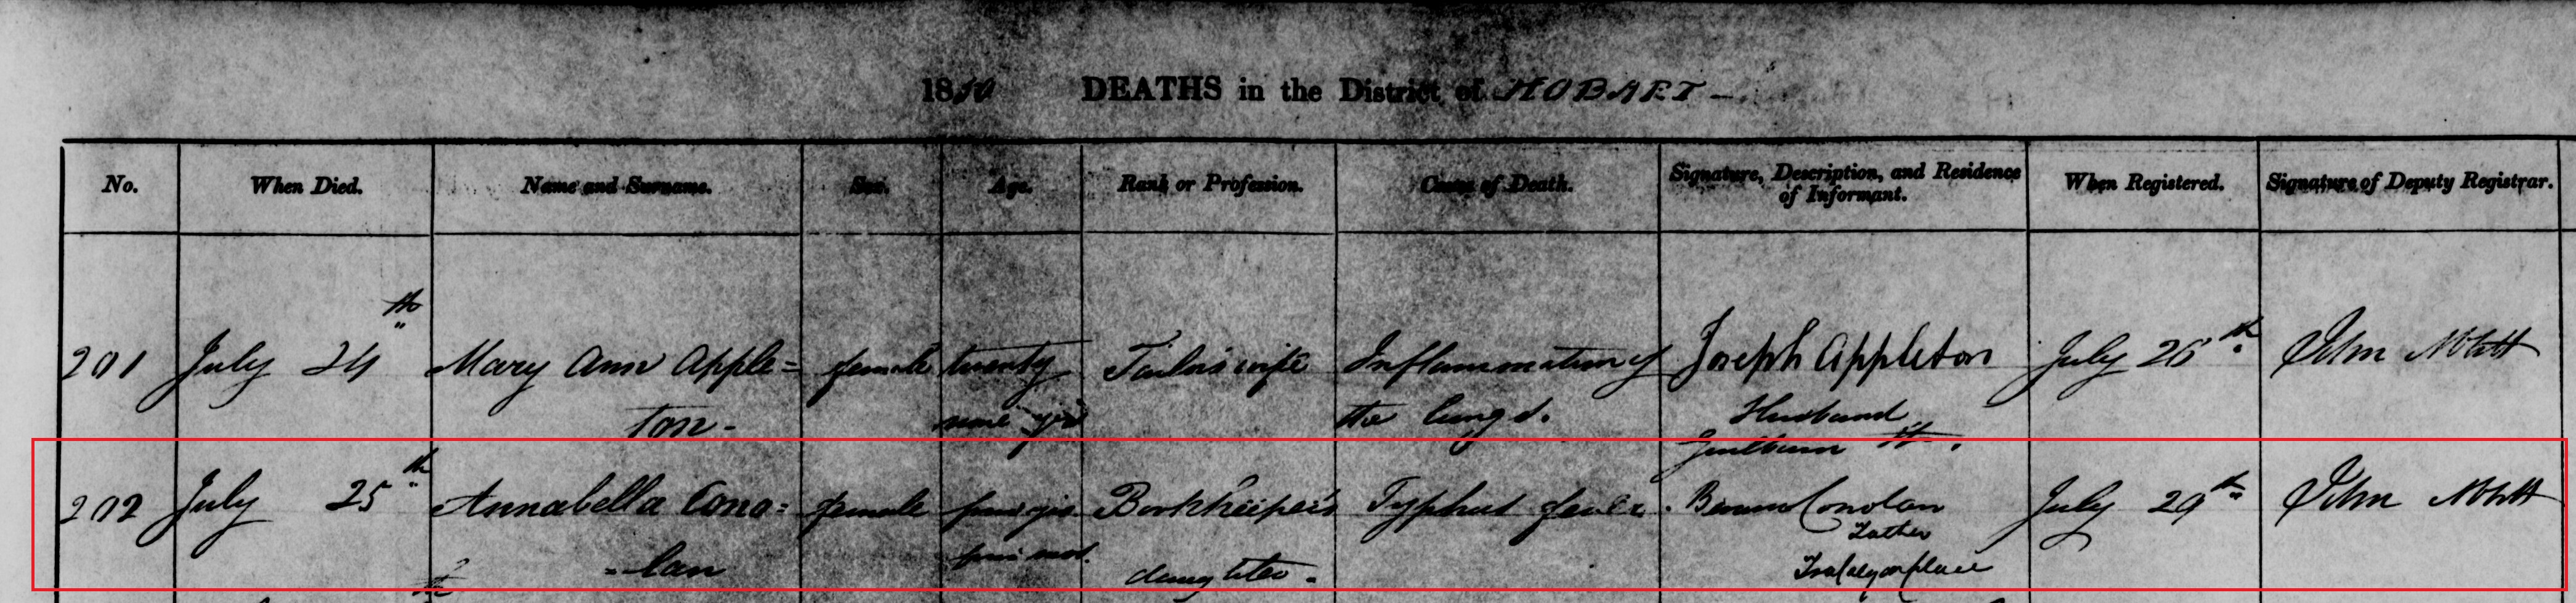 1850 DEATHS in the District of HOBART -
No. When Died. Name and Surname. Sex. Age. Rank or Profession. Cause of Death. Signature, Description, and Residence of Informant. When Registered. Signature of Deputy Registrar.
201 July 24th Mary Ann Apple= female twenty Tailor's wife Inflammation of Joseph Appleton July 26th John Abbott
ton - yrs the lungs. Husband
Goulburn St.
202 July 25th Annabella Cono= female four yrs Bookkeeper's Typhus fever. Conolan July 29th John Abbott
Father
=lan four mos. daughter. Trafalgar place